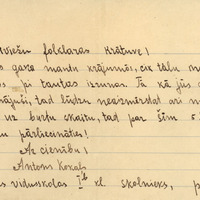 viešu folkloras Krātuve!
gara mantu krājumos, cik tālu n
pi tautas izrunas. Tā kā jūs
tad lūdzu neaizmirstat arī m
uz burtu skaitu, tad par šim
pārliecināties!
Ar cieņību!
Antons Kokals
vidusskolas I^b kl. skolnieks, p